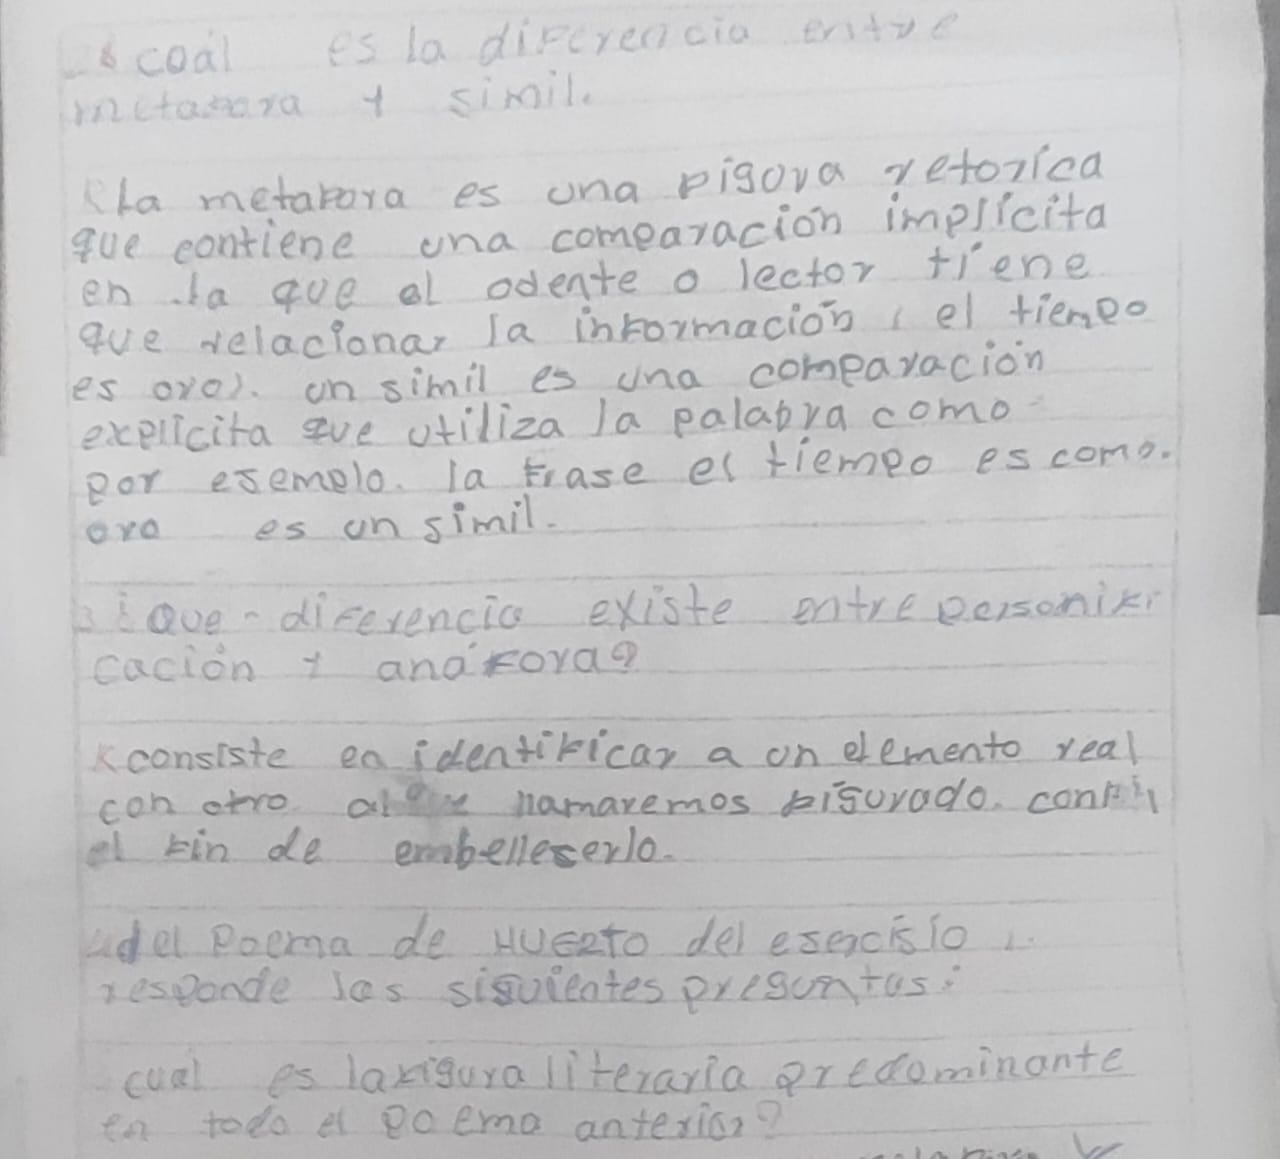 coál es la diferencia entre
metafora y simil.
R la metafora es una figora retorica
que contiene una comparación implícita
en la que el odente o lector tiene
que relacionar la información ( el tiempo
es oro). un simil es una comparación
explicita que utiliza la palabra como
por esemplo. la frase el tiempo es como.
oro es un simil.
¿ que - diferencia existe entre personifi
cación y anáfora?
R consiste en identificar a un elemento real
con otro al llamaremos figurado. con
el fin de embelleserlo.
del Poema de HUERTO del esercisio 1.
responde las siguientes preguntas:
cual es la figura literaria predominante
en todo el poema anterior?